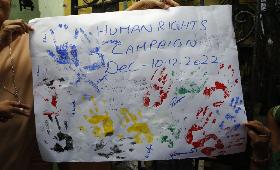 HUMAN RIGHTS
CAMPAIGN
DEC-10.12.2022